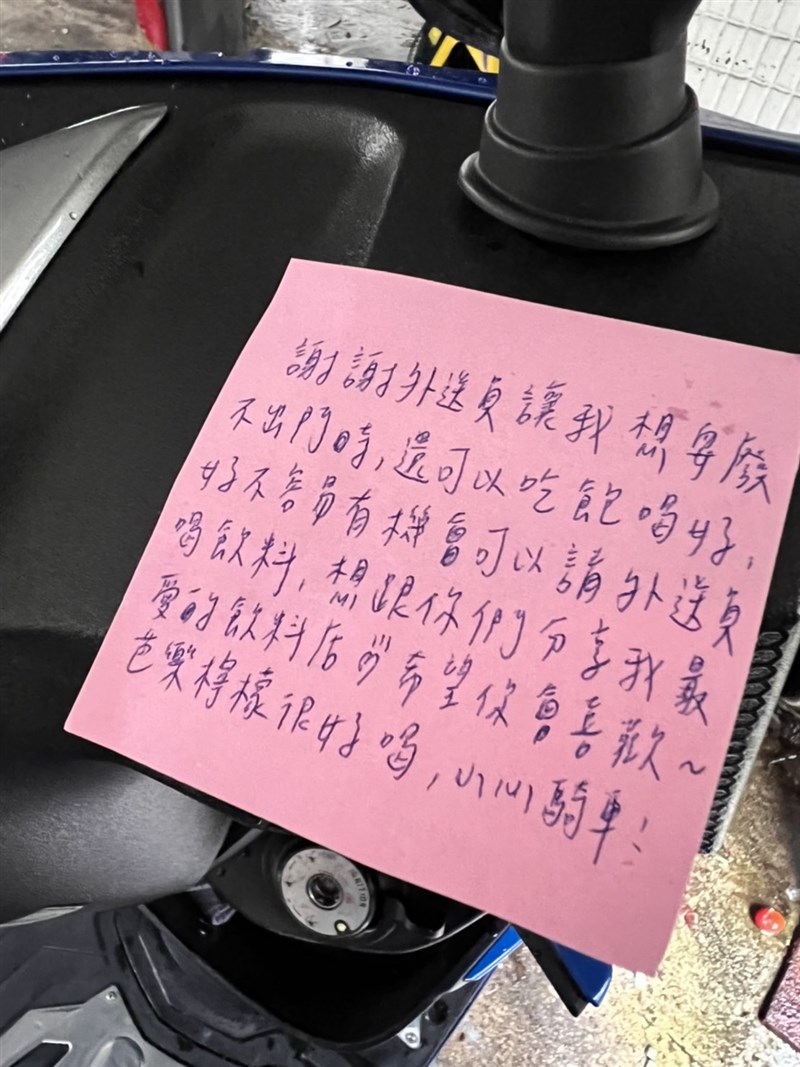 謝謝外送員讓我想要廢
不出門時,還可以吃飽喝好,
好不容易有機會可以請外送員
喝飲料,想跟你們分享我最
愛的飲料店 希望你會喜歡~
芭樂檸檬很好喝,小心騎車!
IGNITION